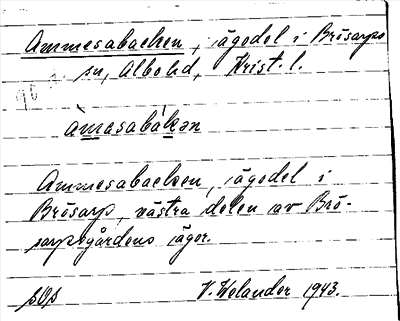 Ammesabacken, ägodel i Brösarps
sn, Albo hd, Krist. l.
àmasabákən
Ammesabacken, ägodel i
Brösarp, västra delen av Brö-
sarpsgårdens ägor.
V. Welander 1943.